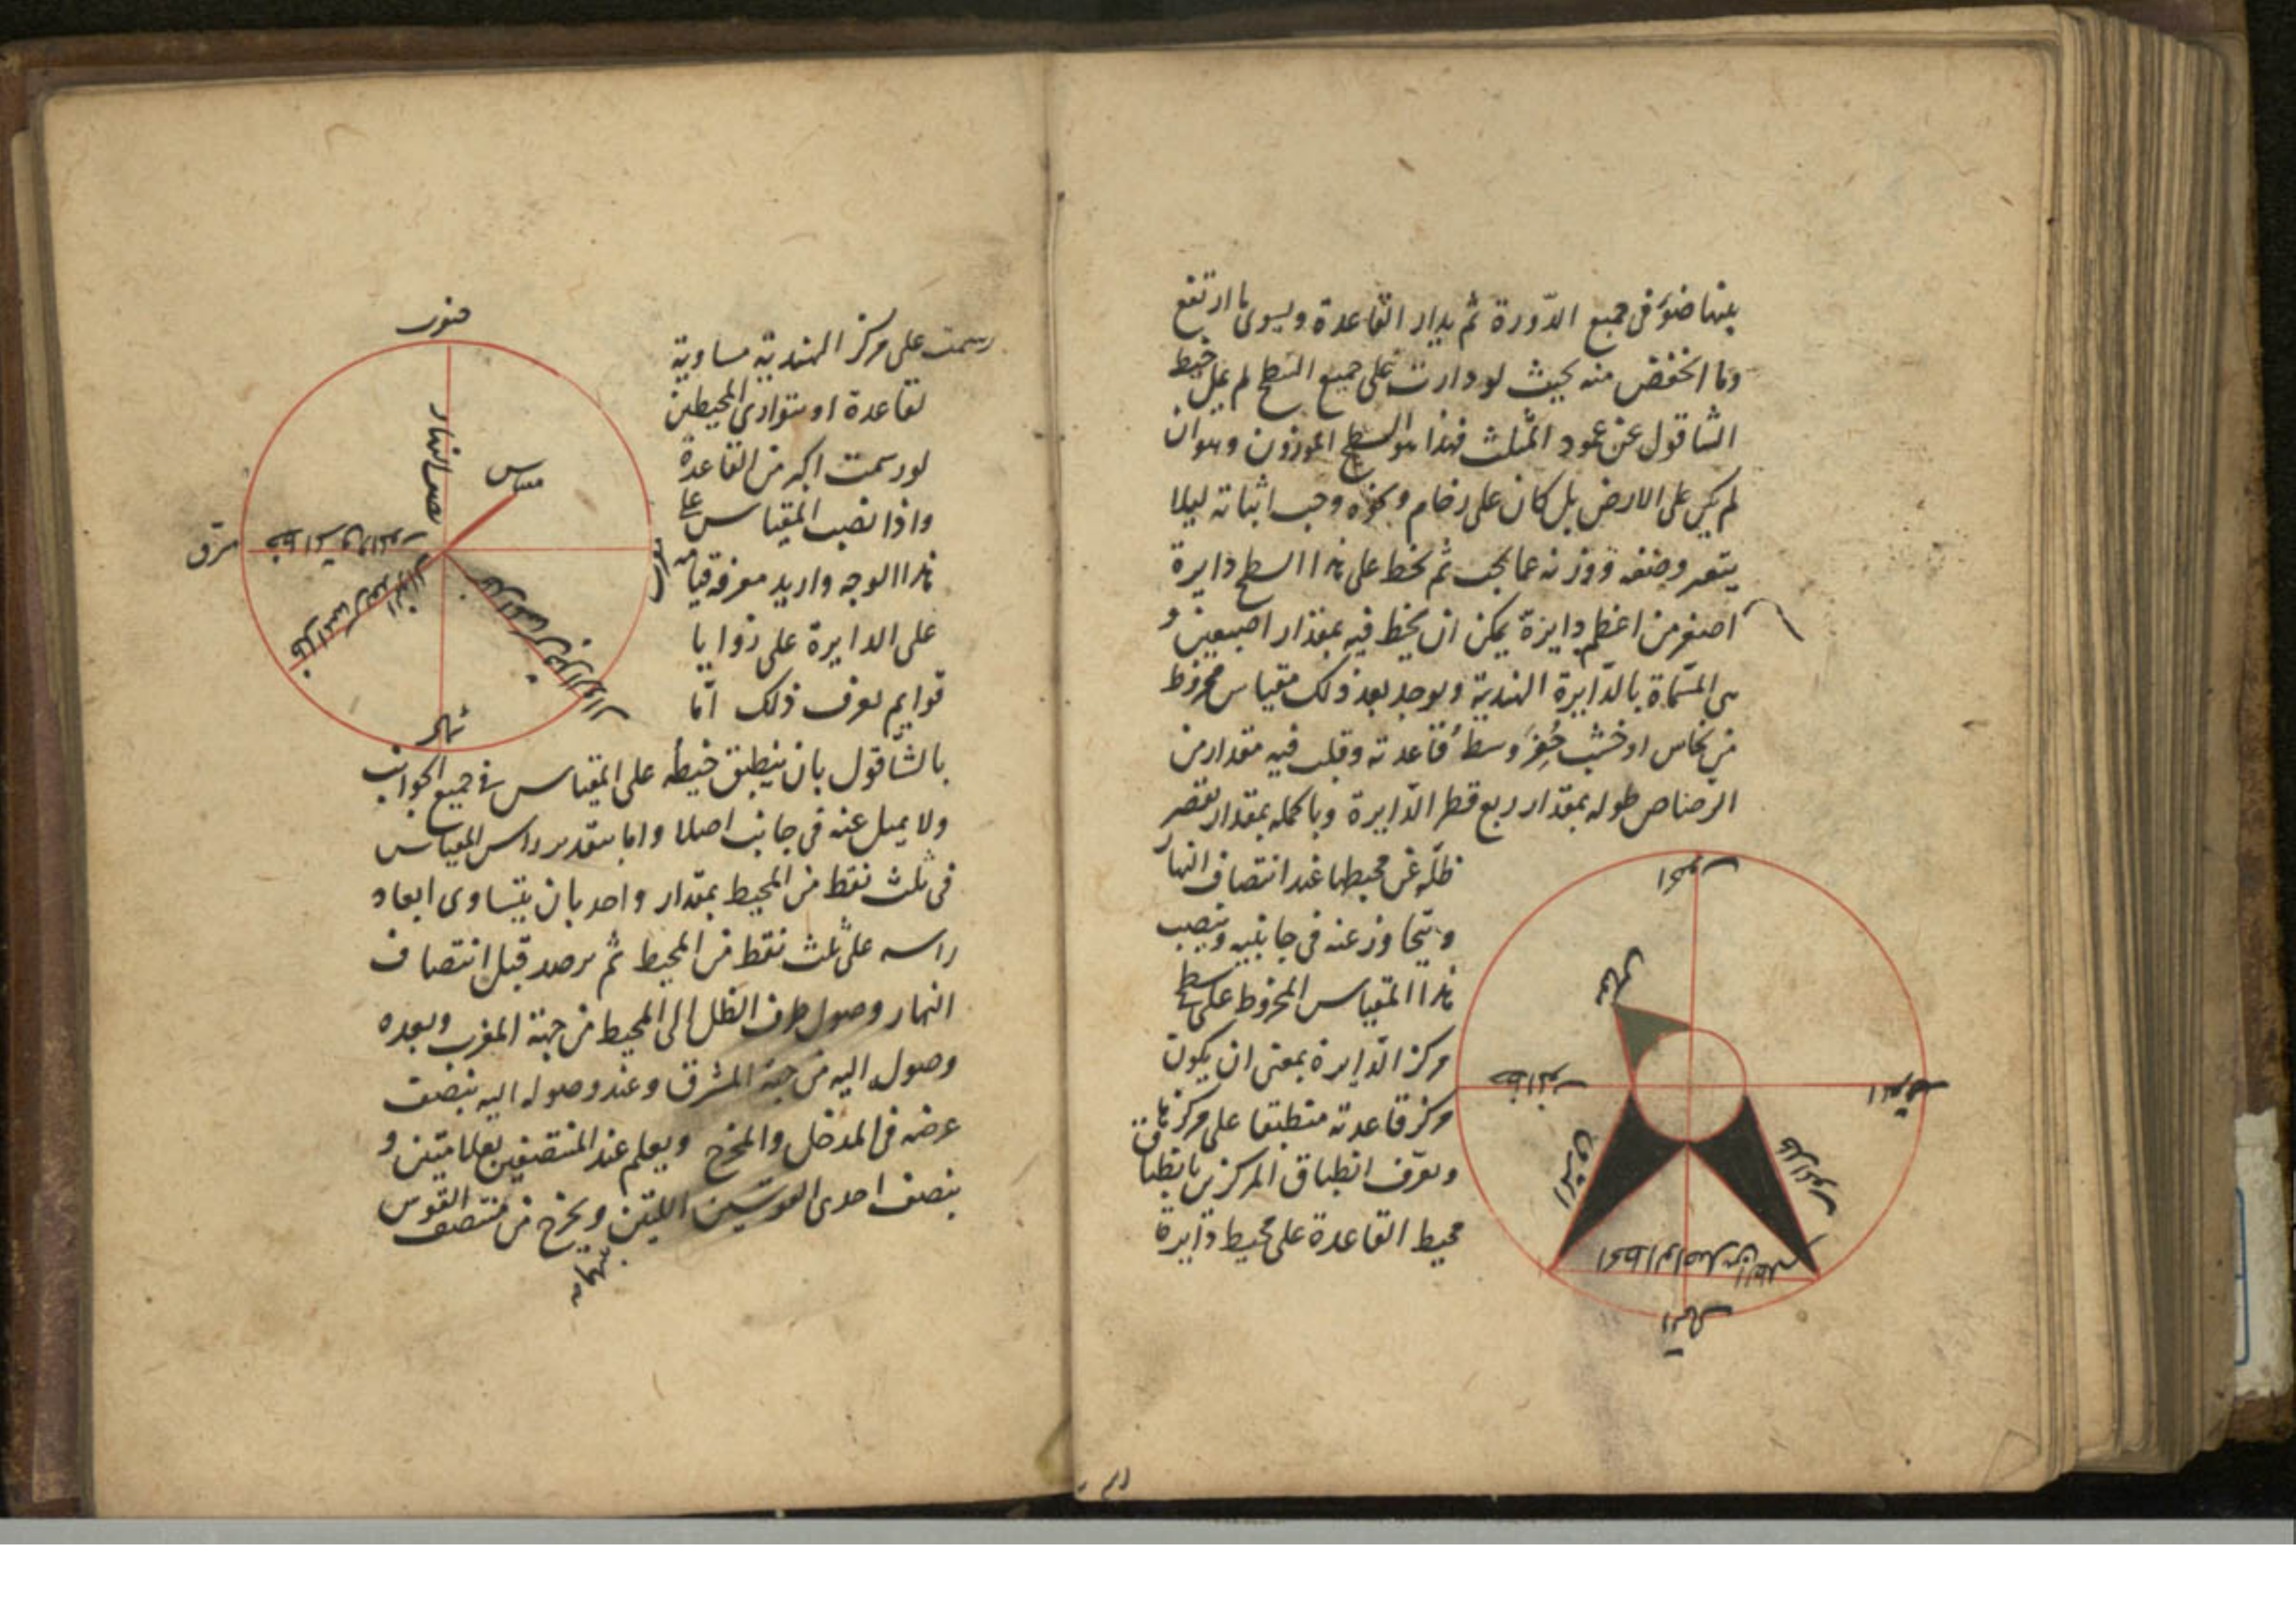 بعضها ضوء فى جميع الدّورة ثم يدار القاعدة ويسوى ما ارتفع
وما انخفض منه بحيث لو دارت على جميع السّطح لم يمل خيط
الشاقول عن عمود المثلث فهذا هو السطح الموزون وهو ان
لم يكن على الارض بل كان على رخام ونحوه وجب اثباته ليلا
يتغير وضعه ووزنه عما يجب ثم يخط على هذا السطح دايرة
اصغر من اعظم دايرة يمكن ان يخط فيه بمقدار اصبعين و
هى المسمّاة بالدّايرة الهندية ويوجد بعد ذلك مقياس مخروط
من نحاس او خشب حُفِرَ وسطُ قاعدته وقلب فيه مقدار من
الرصاص طوله بمقدار ربع قطر الدّايرة وبالجملة بمقدار يقصر
ظلّه عن محيطها عند انتصاف النهار
ويتجاوز عنه فى جانبيه وينصب
هذا المقياس المخروط على
مركز الدّايرة بمعنى ان يكون
مركز قاعدته منطبقا على مركزها
ويعرّف انطباق المركزين بانطباق
محيط القاعدة على محيط دايرة
الجنوب
شمالى
المغرب
الخط الواصل بين الظلين
الشمال
رسمت على مركز الهندية مساوية
لقاعدة او بتوازى المحيطين
لو رسمت اكبر من القاعدة
واذا نصب المقياس على
هذا الوجه واريد معرفة قيامه
على الدايرة على زوايا
قوايم يعرف ذلك امّا
بالشّاقول بان ينطبق خيطه على المقياس فى جميع الجوانب
ولا يميل عنه فى جانب اصلا واما بتقدير راس المقياس
فى ثلث نقط من المحيط بمقدار واحد بان يتساوى ابعاد
راسه على ثلث نقط من المحيط ثم يرصد قبل انتصاف
النهار وصول طرف الظل الى المحيط من جهة المغرب وبعده
وصوله اليه من جهة المشرق وعند وصوله اليه ينصف
عرضه فى المدخل والمخرج ويعلم عند المنتصفين بعلامتين و
ينصف احدى القوسين اللتين ويخرج من منتصف القوس
بينهما
جنوب
نصف النهار
مقياس
خط المشرق والمغرب
شرق
شمال